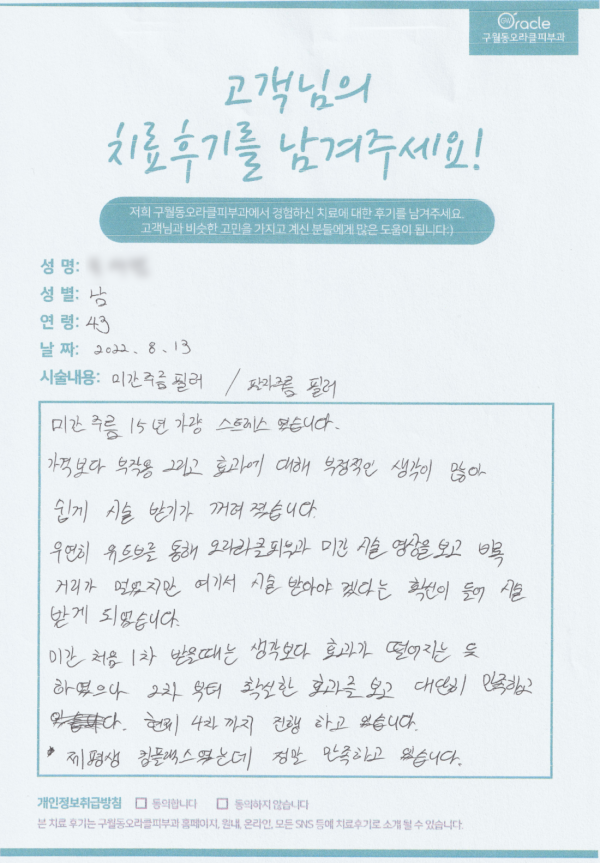 Oracle
구월동오라클피부과
고객님의
치료후기를 남겨주세요!
저희 구월동오라클피부과에서 경험하신 치료에 대한 후기를 남겨주세요.
고객님과 비슷한 고민을 가지고 계신 분들에게 많은 도움이 됩니다:)
성 명:
성 별: 남
연 령: 43
날 짜: 2022. 8. 13
시술내용: 미간주름 필러 / 팔자주름 필러
미간 주름 15년 가량 스트레스 였습니다.
가격보다 부작용 그리고 효과에 대해 부정적인 생각이 많아
쉽게 시술 받기가 꺼려 졌습니다.
우연히 유튜브를 통해 오라클피부과 미간 시술 영상을 보고 비록
거리가 멀었지만 여기서 시술 받아야 겠다는 확신이 들어 시술
받게 되었습니다.
미간 처음 1차 받을때는 생각보다 효과가 떨어지는 듯
하였으나 2차 부터 확실한 효과를 보고 대단히 만족하고
있습니다. 현재 4차 까지 진행 하고 있습니다.
* 제평생 컴플렉스였는데 정말 만족하고 있습니다.
개인정보취급방침 □ 동의합니다 □ 동의하지 않습니다
본 치료 후기는 구월동오라클피부과 홈페이지, 원내, 온라인, 모든 SNS 등에 치료후기로 소개 될 수 있습니다.